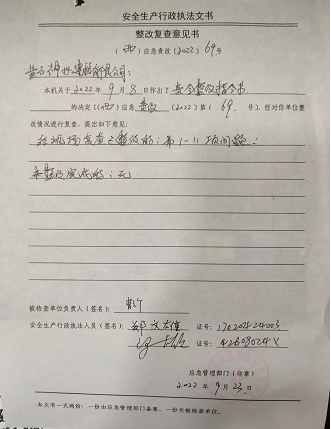 安全生产行政执法文书
整改复查意见书
（西）应急责改〔2022〕69号
黄石 有限公司：
本机关于2022年9月8日作出了责令整改指令书
的决定〔（西）应急 责改〔2022〕第（69 号）〕，经对你单位整
改情况进行复查，提出如下意见：
经现场复查已整改的：第1-11项问题；
未整改完成的：无。
被检查单位负责人（签名）：
安全生产行政执法人员（签名）：郑 证号：
证号：
应急管理部门（印章）
2022年9月23日
本文书一式两份：一份由应急管理部门备案，一份交被检查单位。